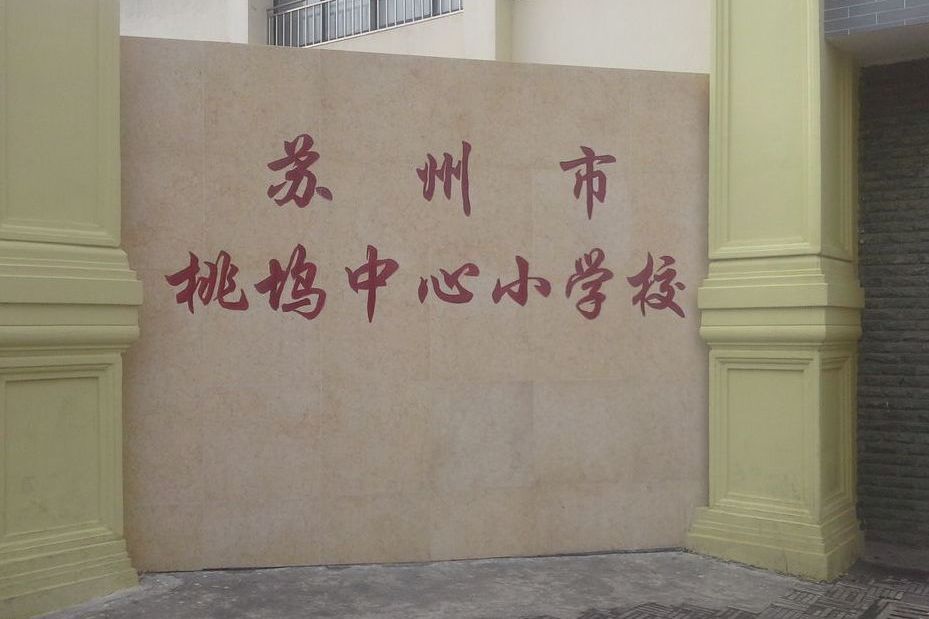 苏州市
桃坞中心小学校